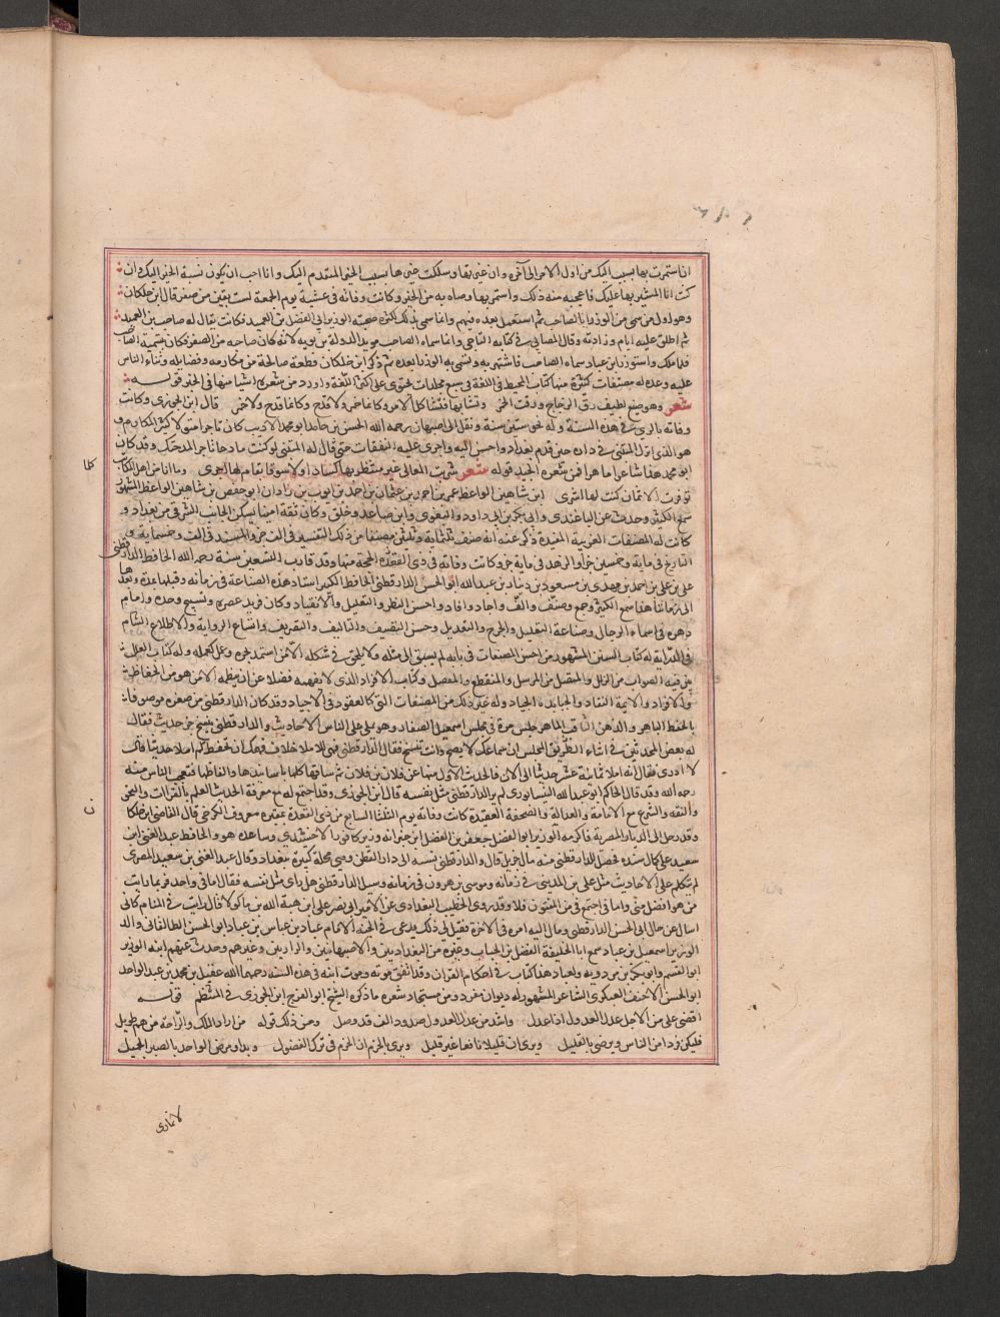 انا استمرت بها سبب اليك من اول الامر الى آخره وان غيرتها وسلكت غيرها سبب الخير المتقدم اليك وانا احب ان يكون نسبة الخير اليك وان
كنت انا المشير بها عليك فاعجبه منه ذلك واستمر بها وصاه به من الخير وكانت وفاته في عشية يوم الجمعة لست بقين من صفر قال ابن خلكان
وهو اول من سمى من الوزراء بالصاحب ثم استعمل بعده فيهم وانما سمى بذلك لكثرة صحبته الوزير ابي الفضل بن العميد فكانت يقال له صاحب بن العميد
ثم اطلق عليه ايام وزارته وقال الصابي في كتابه التاجي وانما سماه الصاحب مويد الدولة بن بويه لانه كان صاحبه من الصغر فكان يسميه الصاحب
فلما ملك واستوزر ابن عباد سماه الصاحب فاشتهر به وتسمى به الوزراء بعده ثم ذكر ابن خلكان قطعة صالحة من مكارمه وفضايله وثناء الناس
عليه وعد له مصنفات كثيرة منها كتاب المحيط في اللغة في سبع مجلدات يحتوى على اكثر اللغة واورد من شعره اشيا منها في الخمر قوله
شعر وهو صنع لطيف رق الزجاج ورقت الخمر وتشابها فتشاكل الامر وكانما خمر ولا قدح وكانما قدح ولا خمر قال ابن الجوزى وكانت
وفاته بالرى في هذه السنة وله نحو ستين سنة ونقل الى اصبهان رحمه الله الحسن بن حامد ابو محمد الاديب كان تاجرا متمولا كثير المكارم و
هو الذى نزل المتنبى في داره حين قدم بغداد واحسن اليه واجرى عليه النفقات حتى قال له المتنبى لو كنت مادحا تاجرا لمدحتك وقد كان
ابو محمد هذا شاعرا ماهرا فمن شعره الجيد قوله شعر شربت المعالى غير منتظر بها كسادا ولا سوقا تقام لها اخرى وما انا من اهل المكاسب كلما
توفرت الاثمان كنت لها اشرى ابن شاهين الواعظ عمر بن احمد بن عثمان بن احمد بن ايوب بن زادان ابو حفص بن شاهين الواعظ المشهور
سمع الكثير وحدث عن الباغندى وابي بكر بن ابي داود والبغوى وابن صاعد وخلق وكان ثقة امينا يسكن الجانب الشرقى من بغداد و
كانت له المصنفات العزيزة المفيدة ذكر عنه انه صنف ثلثماية وثلثين مصنفا من ذلك التفسير في الف جزء والمسند في الف وخمسماية و
التاريخ في ماية وخمسين جزا والزهد في ماية جزء وكانت وفاته في ذى القعدة الحجة منها وقد قارب التسعين سنة رحمه الله الحافظ الدارقطنى
على بن عمر بن احمد بن مهدى بن مسعود بن دينار بن عبد الله ابو الحسن الدارقطنى الحافظ الكبير استاد هذه الصناعة في زمانه وقبله بمدة وبعدها
الى زماننا هذا سمع الكثير وجمع وصنف والف واجاد وافاد واحسن النظر والتعليل والانتقاد وكان فريد عصره ونسيج وحده وامام
دهره في اسماء الرجال وصناعة التعليل والجرح والتعديل وحسن التصنيف والتاليف والتعريف واتساع الرواية والاطلاع التام
في الدراية له كتاب السنن المشهور من احسن المصنفات في بابه لم يسبق الى مثله ولا يلحق في شكله الا من استمد بحره وعمل كعمله وله كتاب العلل
بين فيه الصواب من الزلل والمتصل من المرسل والمنقطع والمعضل وكتاب الافراد الذى لا يفهمه فضلا عن ان ينظمه الا من هو من الحفاظ
والافراد والايمة النقاد والجهابذة الجياد وله غير ذلك من المصنفات التى كالعقود في الاجياد وقد كان الدارقطنى من صغره موصوفا
بالحفظ الباهر والذهن الثاقب الماهر جلس مرة في مجلس اسمعيل الصفار وهو يملى على الناس الاحاديث والدارقطنى ينسخ جزء حديث فقال
له بعض المحدثين في اثناء الطريق المجلس ان سماعك لا يصح وانت تنسخ فقال الدارقطنى فهمي للاملا خلاف فهمك اتحفظ كم املا حديثا قال
لا ادرى فقال انه املا ثمانية عشر حديثا الى الان فالحديث الاول منها عن فلان بن فلان ثم ساقها كلها باسانيدها والفاظها فتعجب الناس منه
رحمه الله وقد قال الحاكم ابو عبد الله النيسابورى لم ير الدارقطنى مثل نفسه قال ابن الجوزى وقد اجتمع له مع معرفة الحديث العلم بالقراات والنحو
والفقه والشعر مع الامامة والعدالة والصحفة العقيدة كانت وفاته يوم الثلثا السابع من ذى القعدة بمقبرة معروف الكرخى قال القاضى ابن خلكان
وقد رحل الى الديار المصرية فاكرمه الوزير ابو الفضل جعفر بن الفضل ابن خنزابه وزير كافور الاخشيدى وساعده هو والحافظ عبد الغنى ابن
سعيد على اكمال مسنده فحصل للدارقطنى منه مال جزيل قال والدارقطنى نسبه الى دار القطن وهى محلة كبيرة ببغداد وقال عبد الغنى بن سعيد المصرى
لم يتكلم على الاحاديث مثل على بن المدينى في زمانه وموسى بن هرون في زمانه وسيل الدارقطنى هل راى مثل نفسه فقال اما في واحد فربما رايت
من هو افضل منى واما فيما اجتمع في من الفنون فلا وقد روى الخطيب البغدادى عن الامير ابي نصر على بن هبة الله بن ماكولا قال رايت في المنام كانى
اسال عن حال ابي الحسن الدارقطنى وما ال اليه امره في الاخرة فقيل لى ذلك يدعى في الجنة الامام عباد بن عباس بن عباد ابو الحسن الطالقانى والد
الوزير اسمعيل بن عباد سمع ابا الخليفة الفضل بن الحباب وغيره من البغداديين والاصبهانيين والرازيين وغيرهم وحدث عنهم ابنه الوزير
ابو القسم وابو بكر بن مردويه ولعباد هذا كتاب في احكام القران وقد اتفق موته وموت ابنه في هذه السنه رحمهما الله عقيل بن محمد بن عبد الواحد
ابو الحسن الاحنف العكبرى الشاعر المشهور له ديوان مفرد ومن مستجاد شعره ما ذكره الشيخ ابو الفرج ابن الجوزى في المنتظم قوله
اقضى على من الاجل عذل العذول اذا عذل واشد من عذل العذول صدود الف قد وصل ومن ذلك قوله من اراد الملك والراحة من هم طويل
فليكن فردا من الناس ويرضى بالقليل ويرى ان قليلا نافعا غير قليل ويرى بالحزم ان الحزم في ترك الفضول ويداوى مرض الواحد بالصبر الجميل
لا يمارى